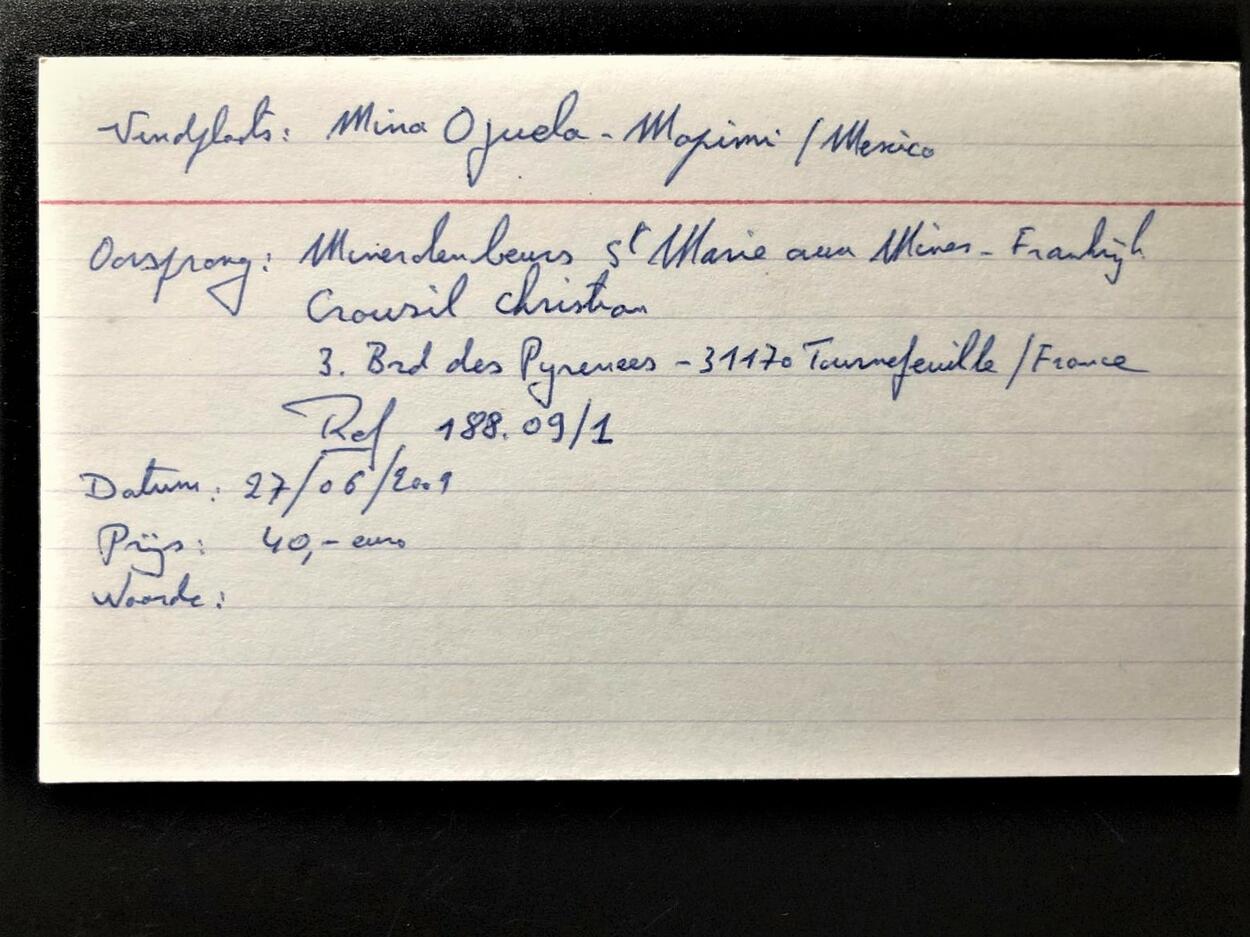 Vindplaats: Mina Ojuela - Mapimi / Mexico
Oorsprong: Mineralenbeurs St Marie aux Mines - Frankrijk
Crouzil Christian
3. Bvd des Pyrenees - 31170 Tournefeuille / France
Ref 188.09/1
Datum: 27/06/2009
Prijs: 40,- euro
Waarde: